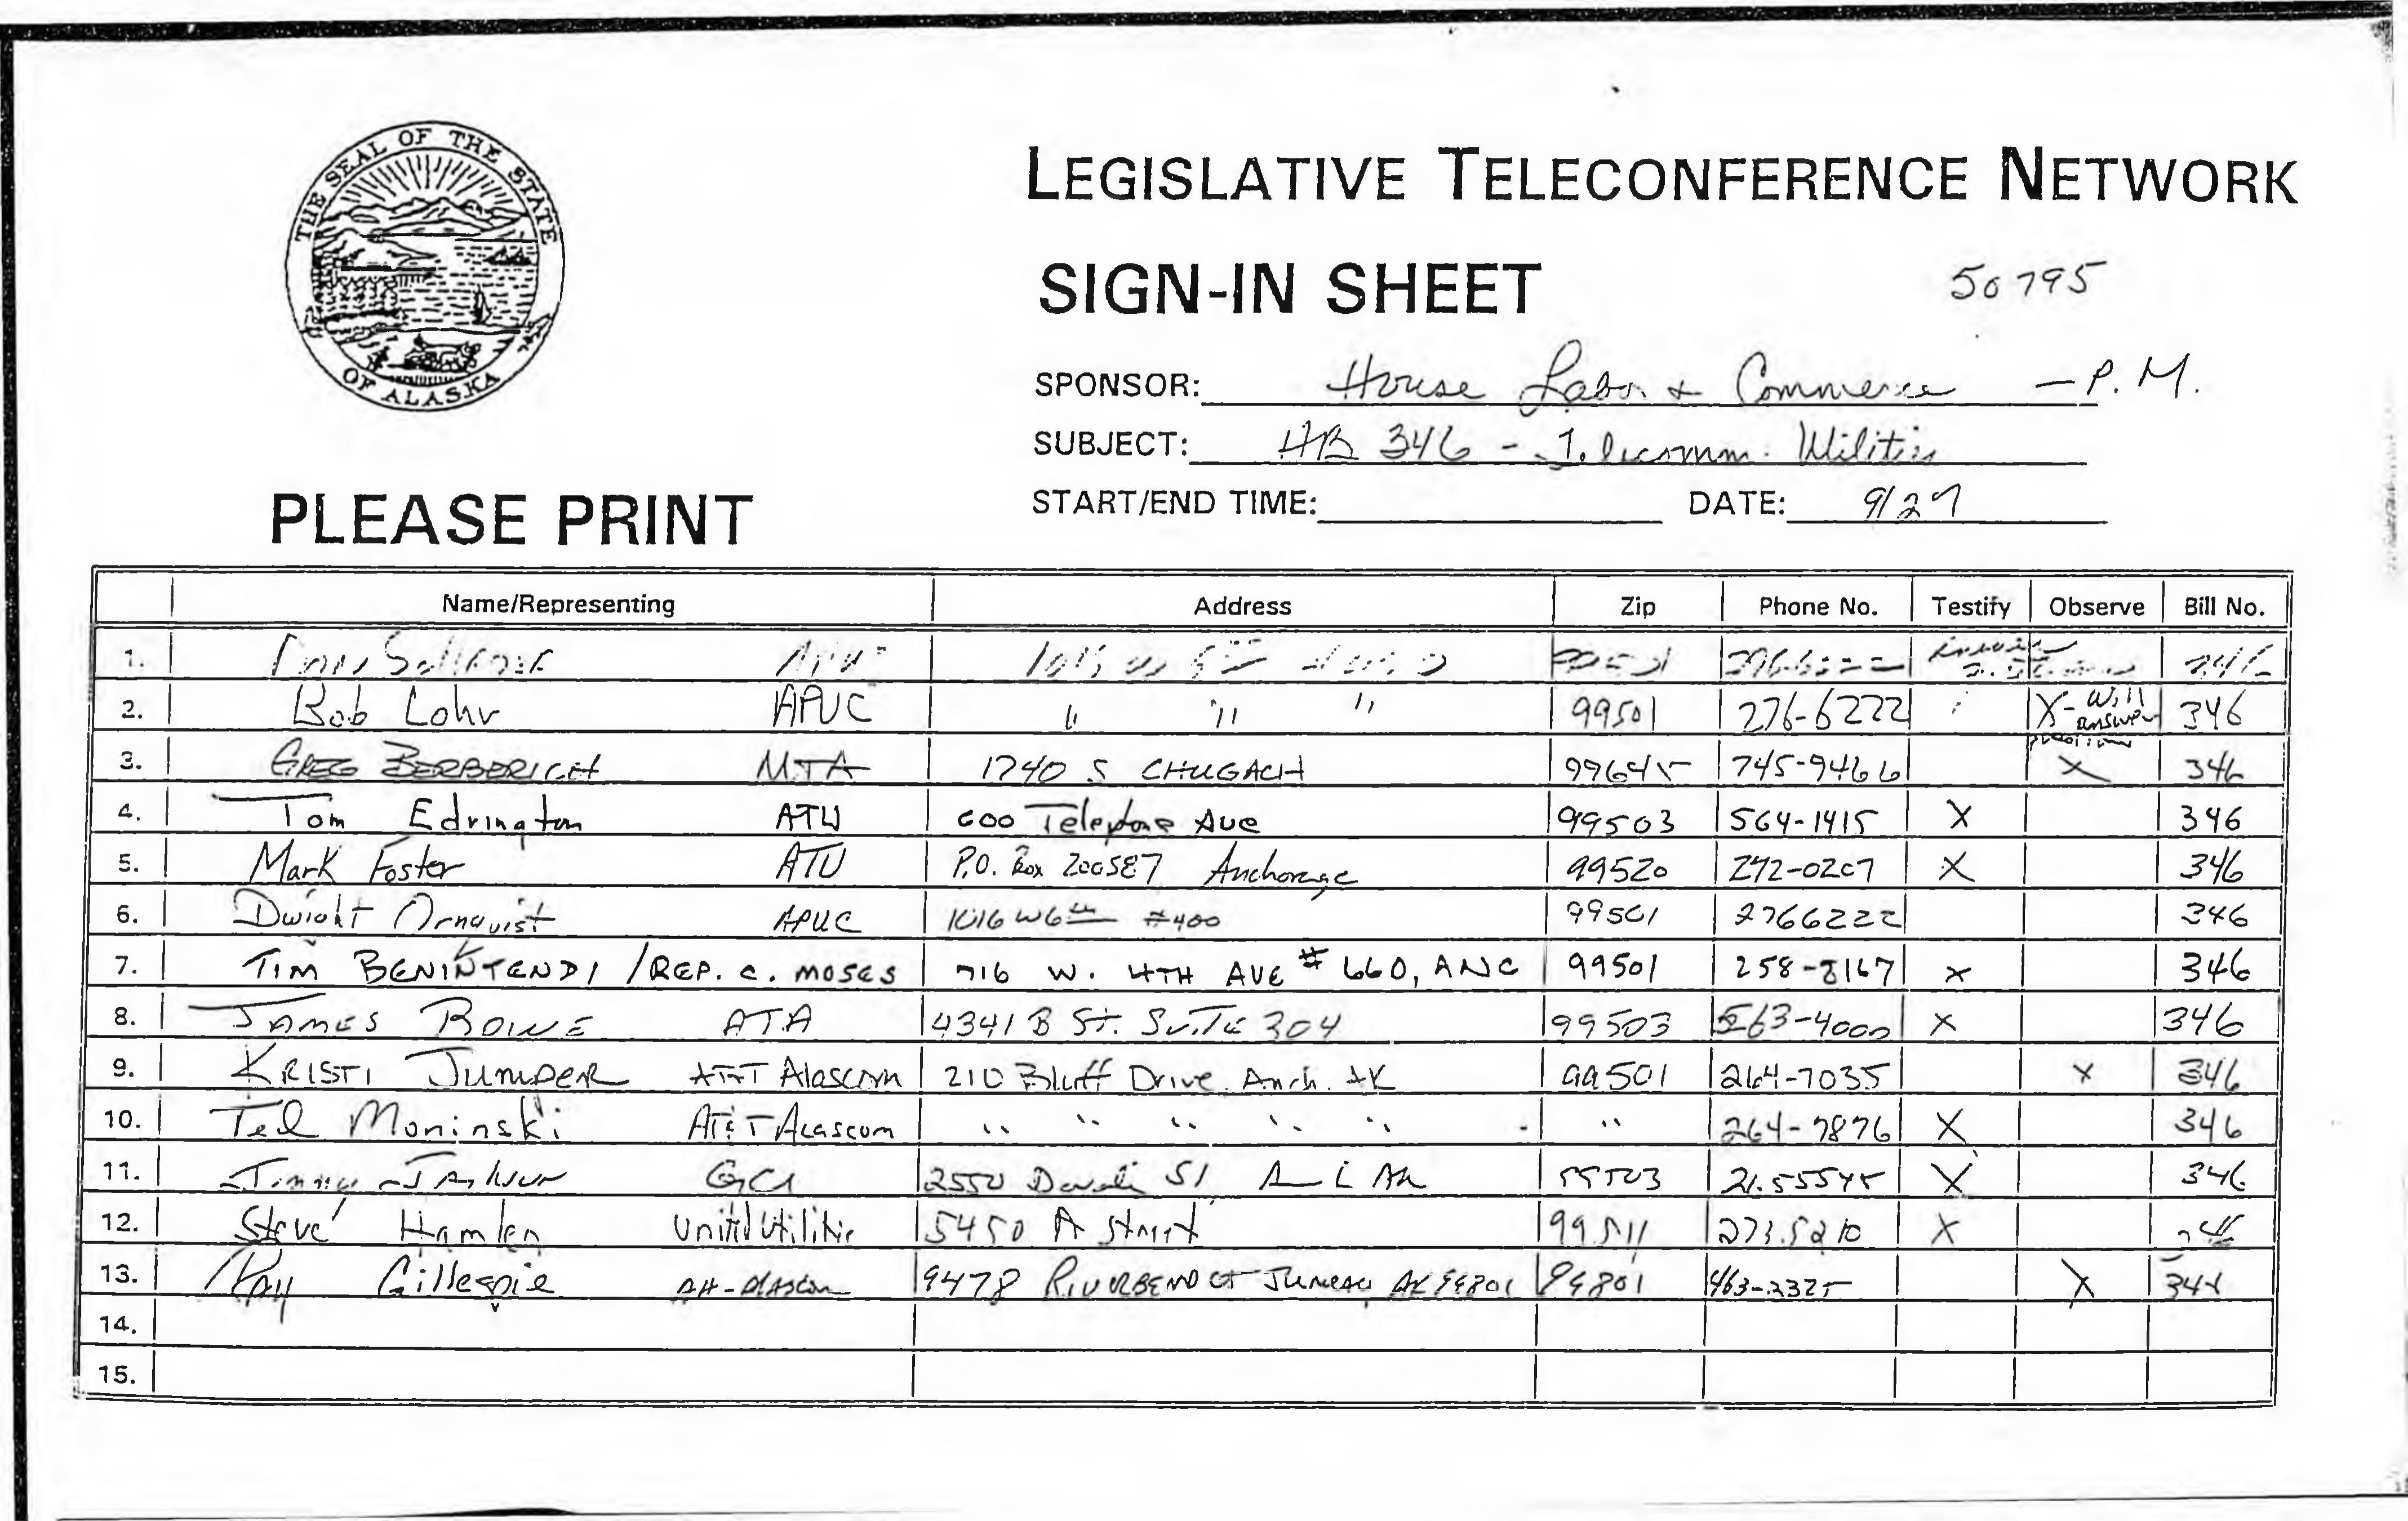 THE SEAL OF THE STATE OF ALASKA
LEGISLATIVE TELECONFERENCE NETWORK
SIGN-IN SHEET 50795
SPONSOR: House Labor & Commerce - P.M.
SUBJECT: HB 346 - Telecomm. Utilities
START/END TIME: DATE: 9/27
PLEASE PRINT
Name/Representing Address Zip Phone No. Testify Observe Bill No.
1. APUC 346
2. Bob Lohr APUC " " " 99501 276-6222 X - will answer questions 346
3. GREG BERBERICH MTA 1740 S CHUGACH 99645 745-9466 X 346
4. Tom Edrington ATU 600 Telephone Ave 99503 564-1415 X 346
5. Mark Foster ATU P.O. Box 200587 Anchorage 99520 272-0207 X 346
6. Dwight Ornquist APUC 1016 W 6th #400 99501 2766222 346
7. TIM BENINTENDI / REP. C. MOSES 716 W. 4TH AVE #660, ANC 99501 258-8167 X 346
8. JAMES ROWE ATA 4341 B St. Suite 304 99503 563-4000 X 346
9. KRISTI JUMPER AT&T Alascom 210 Bluff Drive, Anch. AK 99501 264-7035 X 346
10. Ted Moninski AT&T Alascom " " " " " " 264-7876 X 346
11. GCI 2550 Denali St 99503 X 346
12. Steve Hamlen United Utilities 5450 A Street 99511 273.5210 X
13. Ray Gillespie 9478 RIVERBEND CT JUNEAU AK 99801 99801 463-3325 X 346
14.
15.